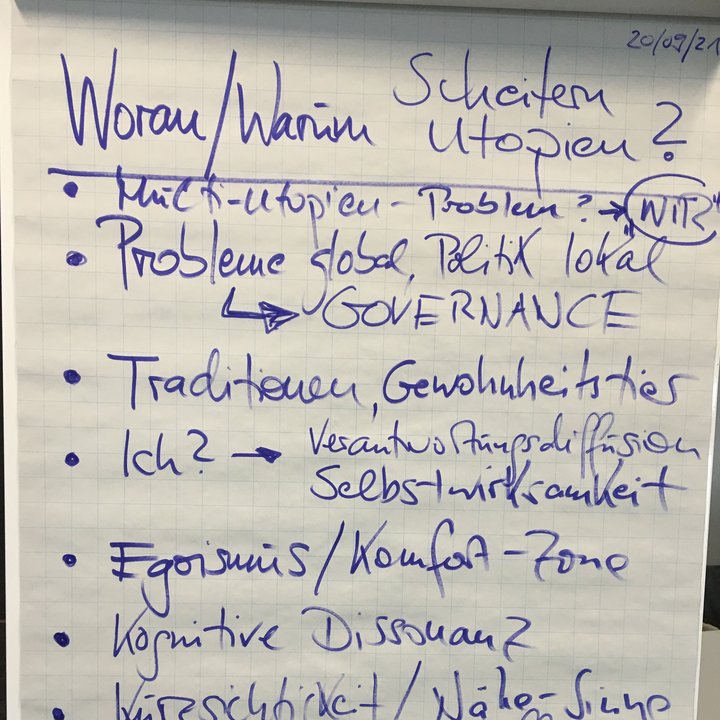 20/09/21
Woran/Warum Scheitern
Utopien?
• Multi-Utopien-Problem? → "WITZ"
• Probleme global, Politik lokal
↳ GOVERNANCE
• Traditionen, Gewohnheitstier
• Ich? → Verantwortungsdiffusion
Selbstwirksamkeit
• Egoismus/Komfort-Zone
• Kognitive Dissonanz
• Kurzsichtigkeit/Nähe-Sinne